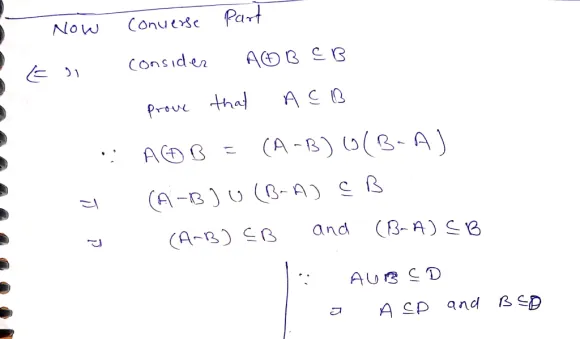 Now Converse Part
(⇐) Consider A⊕B ⊆ B
prove that A ⊆ B
∵ A⊕B = (A-B) ∪ (B-A)
⇒ (A-B) ∪ (B-A) ⊆ B
⇒ (A-B) ⊆ B and (B-A) ⊆ B
∵ A∪B ⊆ D
⇒ A ⊆ D and B ⊆ D